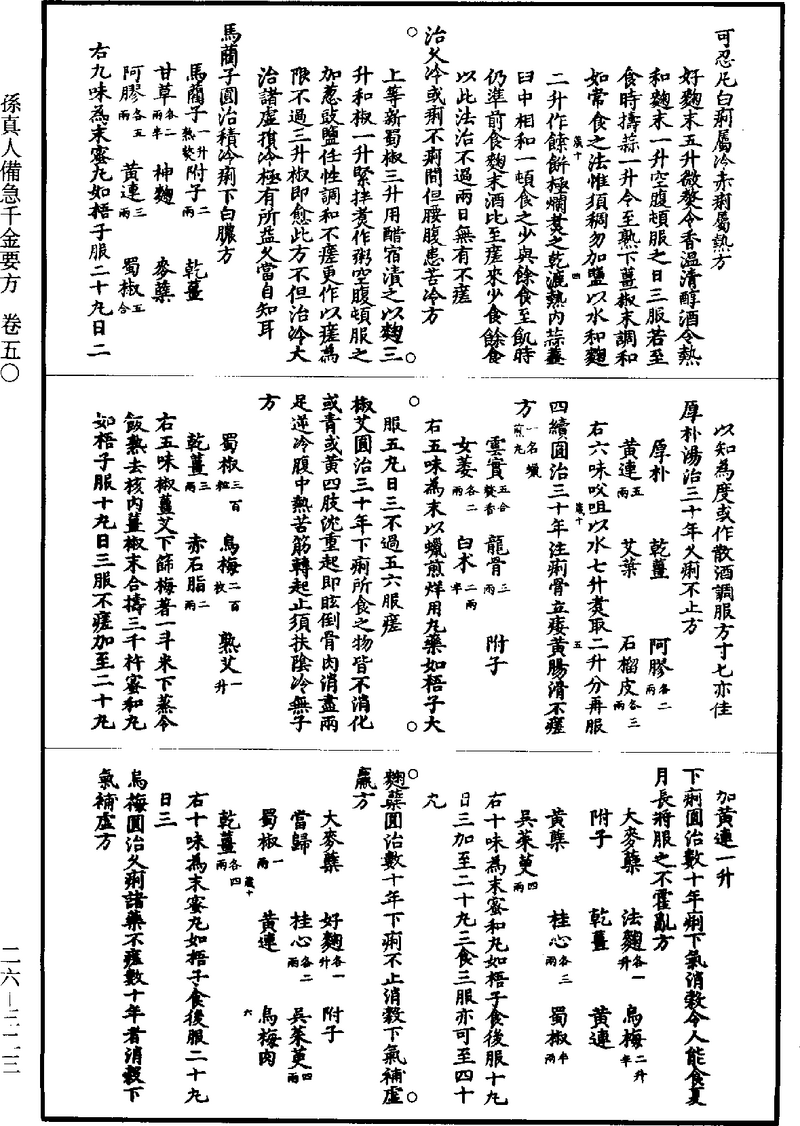 可忍尼白痢屬冷赤痢屬熱方
好麴末五升微熬令香温清醇酒令熱
和麴末一升空腹頓服之日三服若至
食時擣蒜一升令至熟下薑椒末調和
如常食之法惟須稠勿加鹽以水和麴
二升作餘餅極爛煑之乾漉熱内蒜虀
臼中相和一頓食之少與餘食至飢時
仍準前食麴末酒比至瘥來少食餘食
以此法治不過兩日無有不瘥
治久冷或痢不痢間但腰腹患苦冷方
上等新蜀椒三升用醋宿漬之以麴三
升和椒一升緊拌煑作粥空腹頓服之
加葱豉鹽任性調和不瘥更作以瘥為
限不過三升椒即愈此方不但治冷大
治諸虛損冷極有所益久當自知耳
馬藺子圓治積冷痢下白膿方
馬藺子一升熟熬 附子二兩 乾薑
甘草各二兩半 神麴 麥糵
阿膠各五兩 黃連三兩 蜀椒五合
右九味為末蜜丸如梧子服二十丸日二
以知為度或作散酒調服方寸七亦佳
厚朴湯治三十年久痢不止方
厚朴 乾薑 阿膠各二兩
黃連五兩 艾葉 石榴皮各三兩
右六味㕮咀以水七升煑取二升分再服
四續圓治三十年注痢骨立痿黃腸滑不瘥
方一名蠟煎丸
雲實五合熬香 龍骨三兩 附子
女萎各二兩 白朮二兩半
右五味為末以蠟煎烊用丸藥如梧子大
服五丸日三不過五六服瘥
椒艾圓治三十年下痢所食之物皆不消化
或青或黃四肢沈重起即眩倒骨肉消盡兩
足逆冷腹中熱苦筋轉起止須扶陰冷無子
方
蜀椒三百粒 烏梅二百枚 熟艾一升
乾薑三兩 赤石脂二兩
右五味椒薑艾下篩梅著一斗米下蒸令
飯熟去核内薑椒末合擣三千杵蜜和丸
如梧子服十丸日三服不瘥加至二十丸
加黃連一升
下痢圓治數十年痢下氣消穀令人能食夏
月長將服之不霍亂方
大麥糵 法麴各一升 烏梅二升半
附子 乾薑 黃連
黃糵 桂心各三兩 蜀椒半兩
吳茱萸四兩
右十味為末蜜和丸如梧子食後服十丸
日三加至二十丸三食三服亦可至四十
丸
麴糵圓治數十年下痢不止消穀下氣補虛
羸方
大麥糵 好麴各一升 附子
當歸 桂心各二兩 吳茱萸四兩
蜀椒一兩 黃連 烏梅肉
乾薑各四兩
右十味為末蜜丸如梧子食後服二十丸
日三
烏梅圓治久痢諸藥不瘥數十年者消穀下
氣補虛方
孫真人備急千金要方 卷五〇
二六—三二三